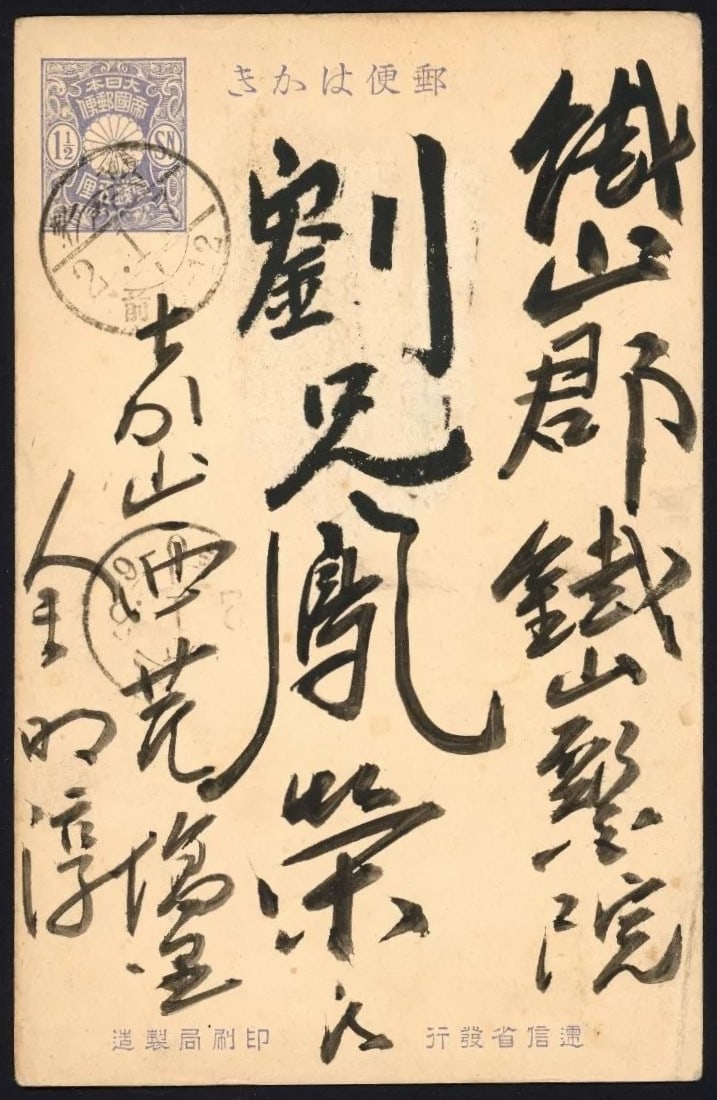 郵便はかき
大日本
帝國郵便
1½ SN
鐵山郡 鐵山醫院
劉兄鳳榮氏
山西荒
金明淳
2.1
前
遞信省發行
印刷局製造